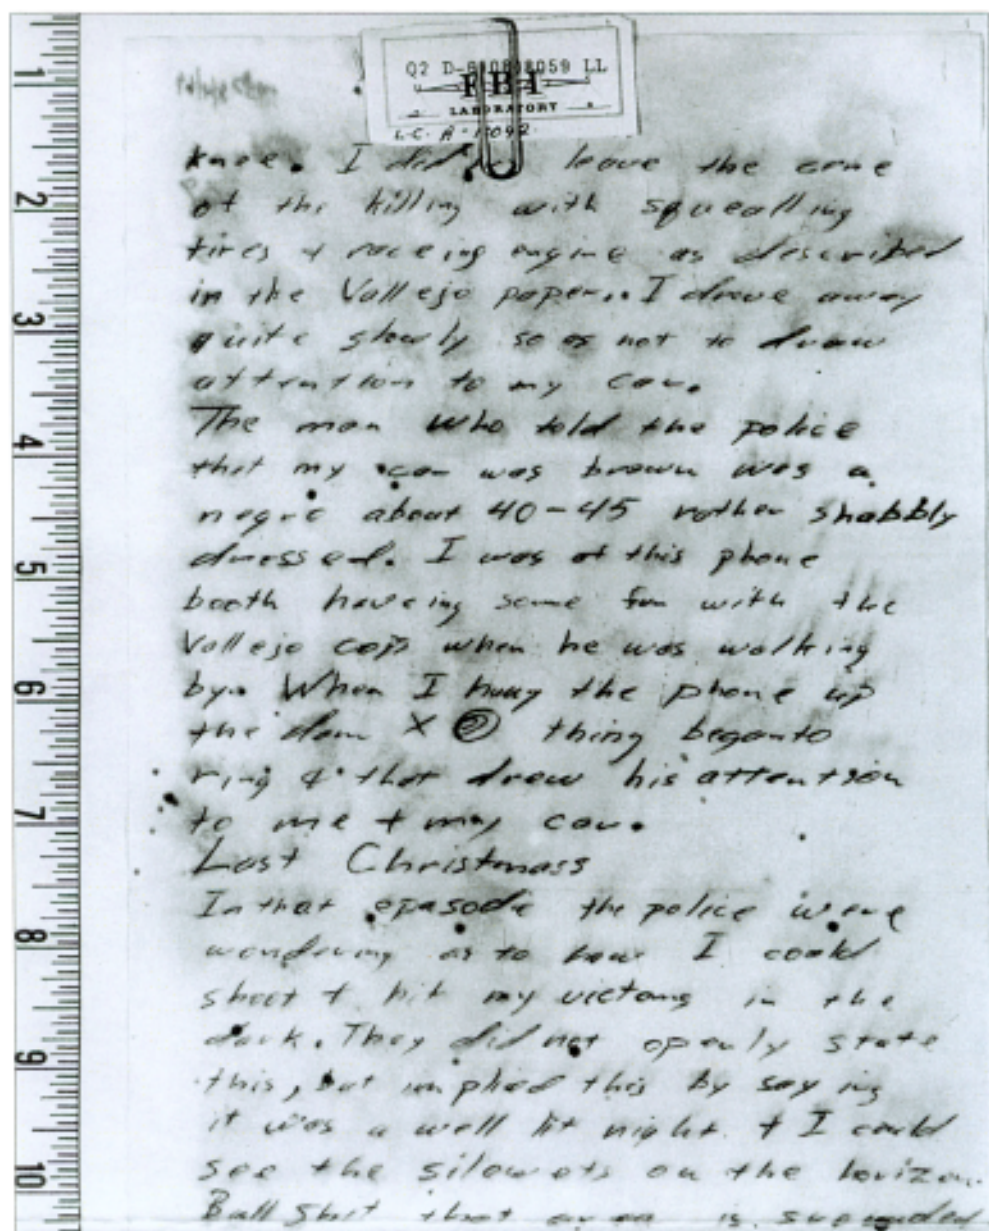 Q2 D-
LL
FBI
LABORATORY
L.C. A-
knee. I did leave the cene
of the killing with squealling
tires + raceing engine as described
in the Vallejo paper.. I drove away
quite slowly so as not to draw
attention to my car.
The man who told the police
that my car was brown was a
negro about 40-45 rather shabbly
dressed. I was at this phone
booth haveing some fun with the
Vallejo cops when he was walking
by. When I hung the phone up
the dam X thing beganto
ring & that drew his attention
to me + my car.
Last Christmass
In that epasode the police were
wondering as to how I could
shoot + hit my victoms in the
dark. They did not openly state
this, but implied this by saying
it was a well lit night + I could
see the silowets on the horizon.
Ball Shit that area is srounded
1
2
3
4
5
6
7
8
9
10